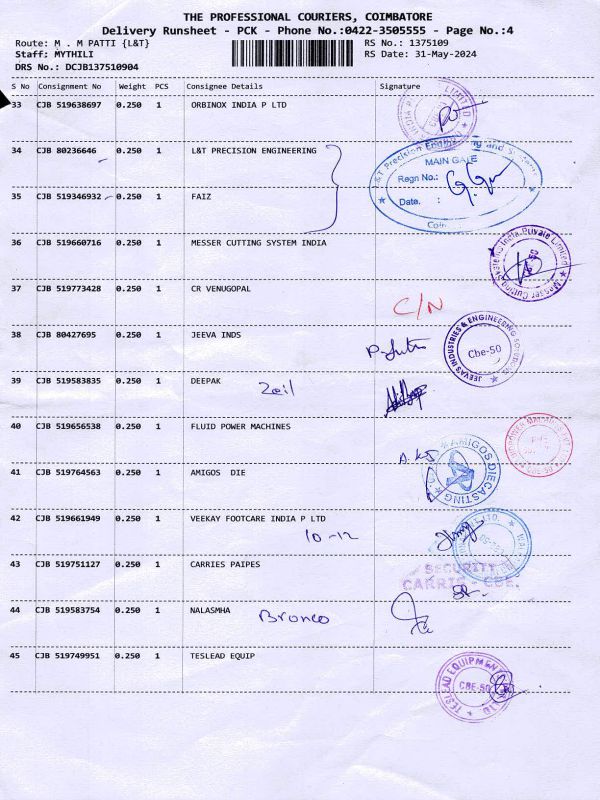 THE PROFESSIONAL COURIERS, COIMBATORE
Delivery Runsheet - PCK - Phone No.:0422-3505555 - Page No.:4
Route: M . M PATTI {L&T} RS No.: 1375109
Staff; MYTHILI RS Date: 31-May-2024
DRS No.: DCJB137510904
S No Consignment No Weight PCS Consignee Details Signature
33 CJB 519638697 0.250 1 ORBINOX INDIA P LTD
34 CJB 80236646 0.250 1 L&T PRECISION ENGINEERING
L&T Precision Engineering and Systems
MAIN GATE
Regn No.:
Date. :
35 CJB 519346932 0.250 1 FAIZ
36 CJB 519660716 0.250 1 MESSER CUTTING SYSTEM INDIA
Messer Cutting Systems India Private Limited
37 CJB 519773428 0.250 1 CR VENUGOPAL
C/N
38 CJB 80427695 0.250 1 JEEVA INDS
JEEVAS INDUSTRIES & ENGINEERING
Cbe-50
39 CJB 519583835 0.250 1 DEEPAK
40 CJB 519656538 0.250 1 FLUID POWER MACHINES
41 CJB 519764563 0.250 1 AMIGOS DIE
AMIGOS DIECASTING
42 CJB 519661949 0.250 1 VEEKAY FOOTCARE INDIA P LTD
10-12
43 CJB 519751127 0.250 1 CARRIES PAIPES
SECURITY
CARRIS - CBE.
44 CJB 519583754 0.250 1 NALASMHA Bronco
45 CJB 519749951 0.250 1 TESLEAD EQUIP
TESLEAD EQUIPMENTS
CBE-50